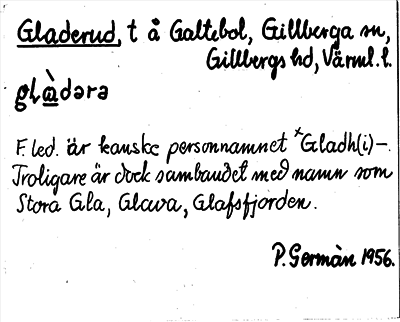 Gladerud, t å Galtebol, Gillberga sn,
Gillbergs hd, Värml. l.
glàdərə
F. led. är kanske personnamnet *Gladh(i)-.
Troligare är dock sambandet med namn som
Stora Gla, Glava, Glafsfjorden.
P. Germàn 1956.